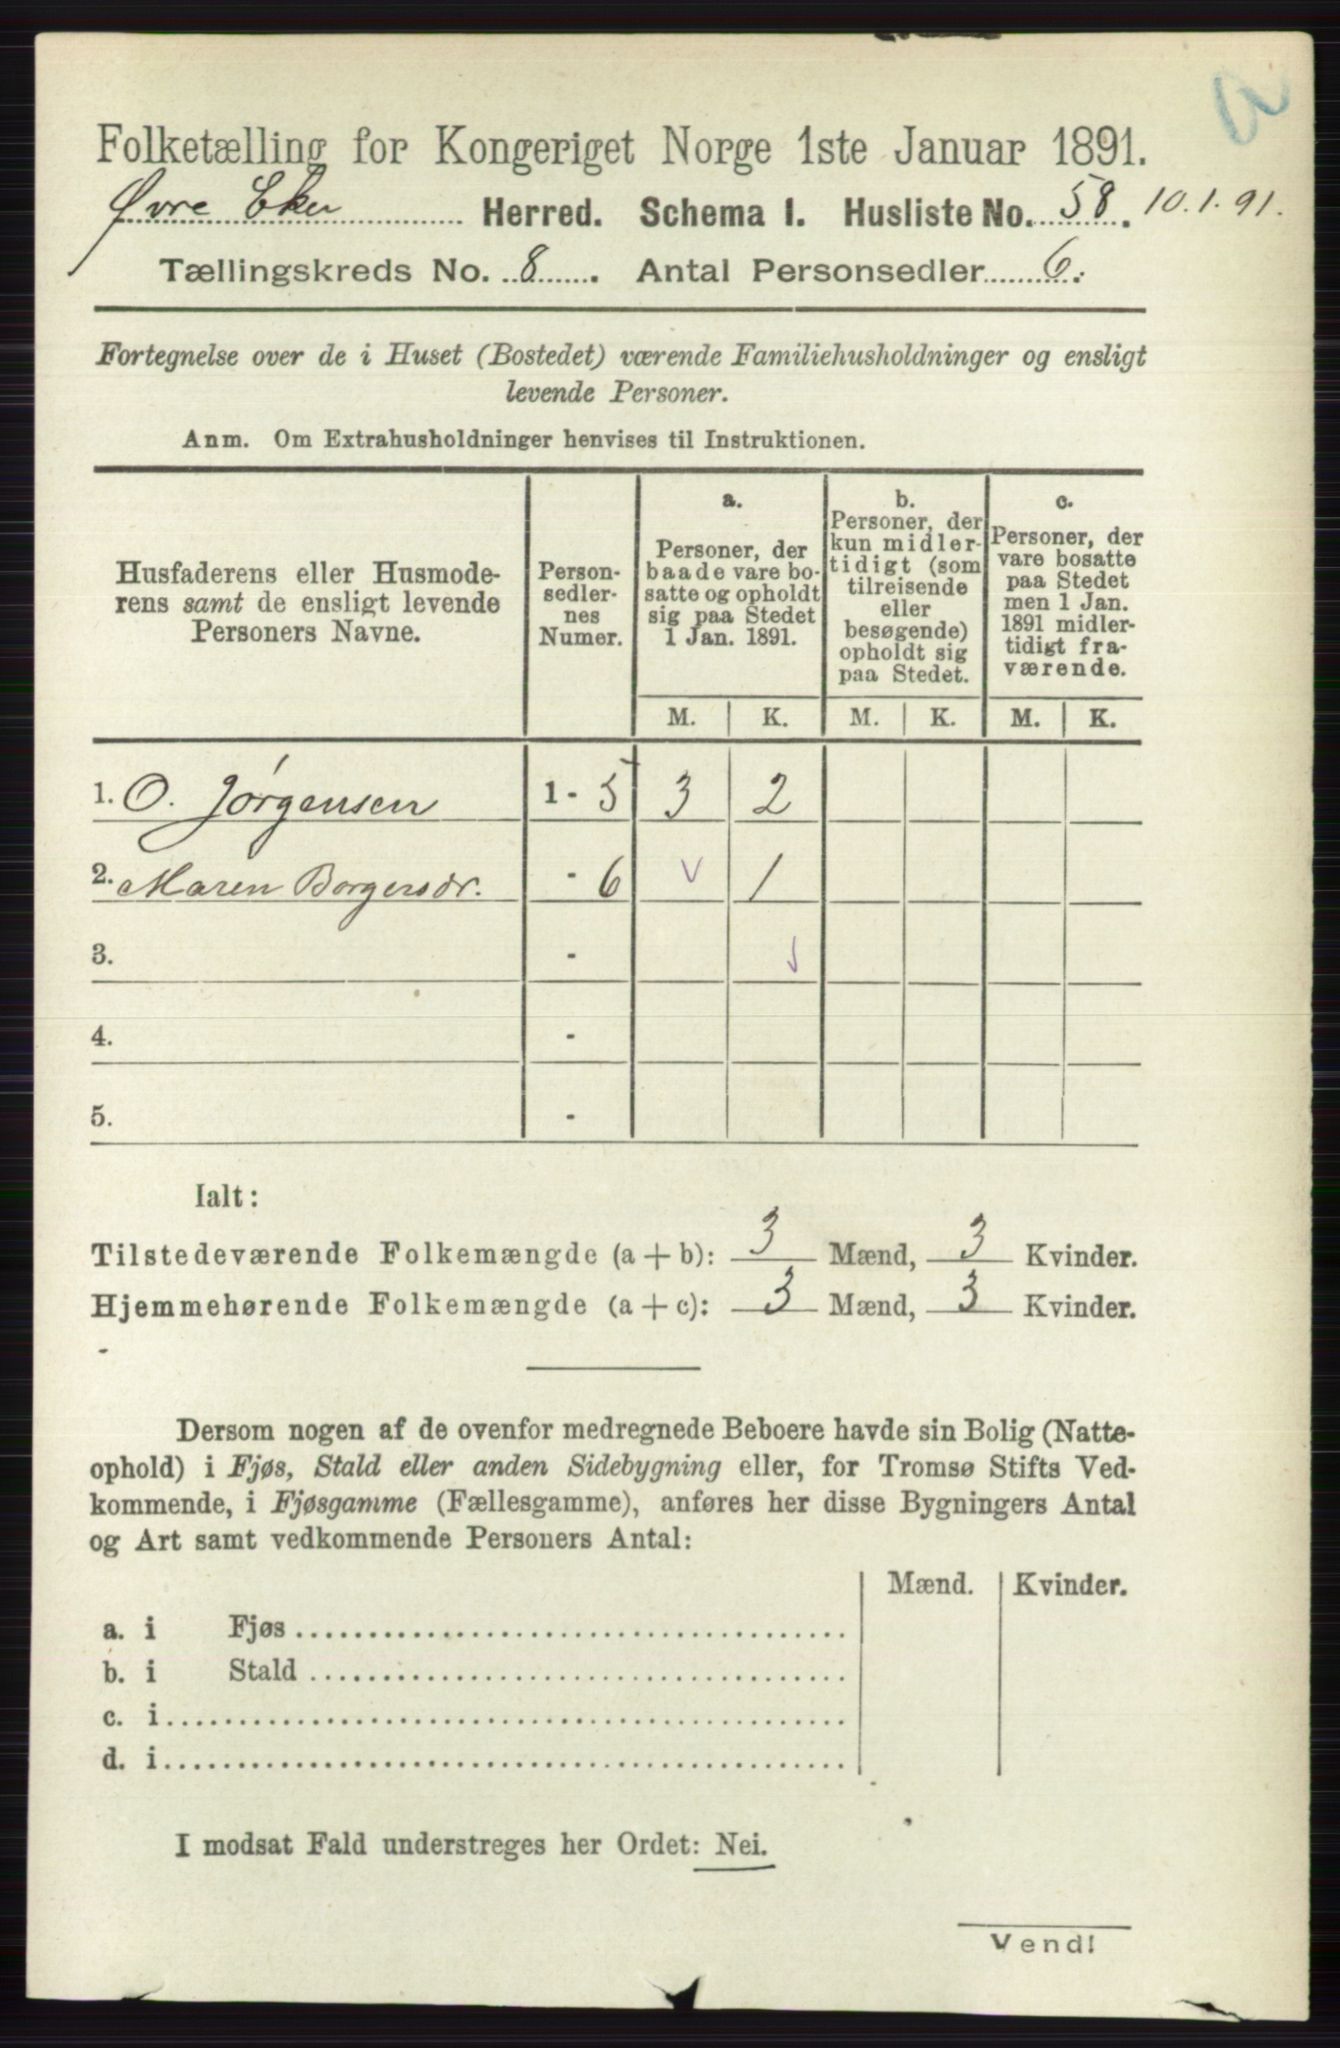 Folketælling for Kongeriget Norge 1ste Januar 1891.
Øvre Eker Herred. Schema I. Husliste No. 58. 10.1.91.
Tællingskreds No. 8. Antal Personsedler 6.
Fortegnelse over de i Huset (Bostedet) værende Familiehusholdninger og ensligt
levende Personer.
Anm. Om Extrahusholdninger henvises til Instruktionen.
Husfaderens eller Husmode-
rens samt de ensligt levende
Personers Navne.
Person-
sedler-
nes
Numer.
a.
Personer, der
baade vare bo-
satte og opholdt
sig paa Stedet
1 Jan. 1891.
b.
Personer, der
kun midler-
tidigt (som
tilreisende
eller
besøgende)
opholdt sig
paa Stedet.
c.
Personer, der
vare bosatte
paa Stedet
men 1 Jan.
1891 midler-
tidigt fra-
værende.
M. K. M. K. M. K.
1. O. Jørgensen 1 - 5 3 2
2. Maren Borgersdr. - 6 1
3. -
4. -
5. -
Ialt:
Tilstedeværende Folkemængde (a + b): 3 Mænd, 3 Kvinder.
Hjemmehørende Folkemængde (a + c): 3 Mænd, 3 Kvinder.
Dersom nogen af de ovenfor medregnede Beboere havde sin Bolig (Natte-
ophold) i Fjøs, Stald eller anden Sidebygning eller, for Tromsø Stifts Ved-
kommende, i Fjøsgamme (Fællesgamme), anføres her disse Bygningers Antal
og Art samt vedkommende Personers Antal:
Mænd. Kvinder.
a. i Fjøs
b. i Stald
c. i
d. i
I modsat Fald understreges her Ordet: Nei.
Vend!